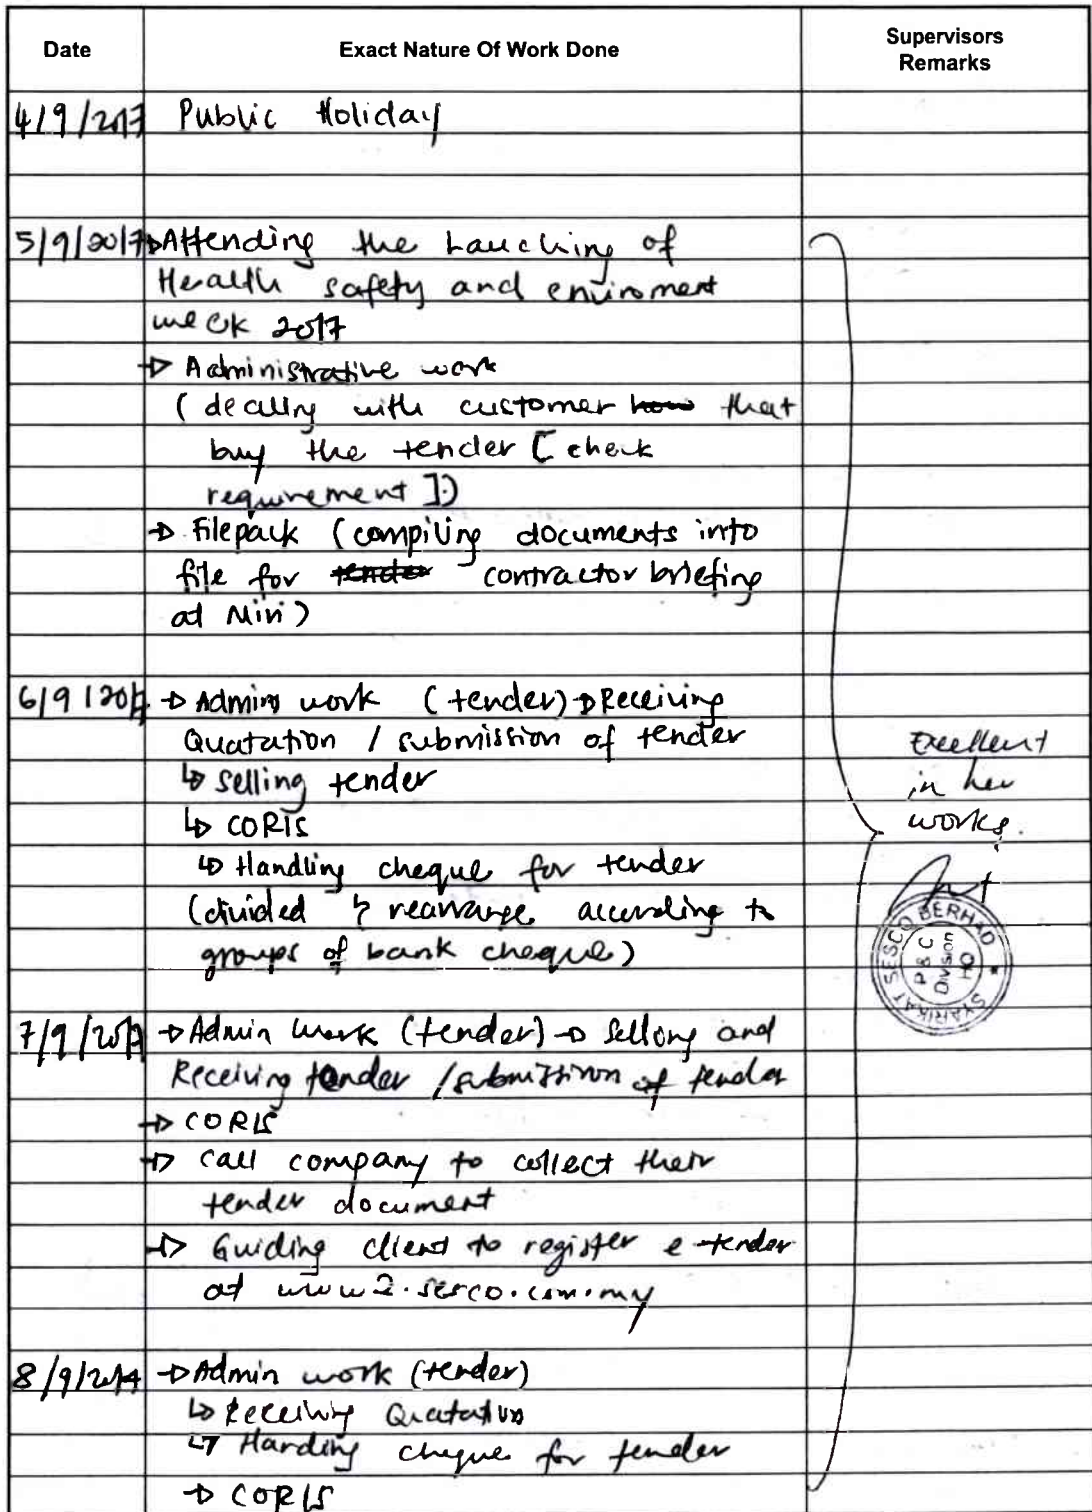 Date Exact Nature Of Work Done Supervisors Remarks
4/9/2017 Public Holiday
5/9/2017 → Attending the Lauching of
Health safety and enviroment
week 2017
→ Administrative work
(dealing with customer how that
buy the tender [check
requirement])
→ Filepack (compiling documents into
file for tender contractor briefing
at Miri)
6/9/2017 → Admin work (tender) → Receiving
Quatation / submission of tender
↳ selling tender
↳ CORIS
↳ Handling cheque for tender
(divided & rearrange according to
groups of bank cheque)
Excellent
in her
works.
SYARIKAT SESCO BERHAD
P & C
Division
HQ
7/9/2017 → Admin work (tender) → Sellong and
Receiving tender / submission of tender
→ CORIS
→ call company to collect their
tender document
→ Guiding client to register e-tender
at www2.sesco.com.my
8/9/2017 → Admin work (tender)
↳ Receiving Quatation
↳ Handing cheque for tender
→ CORIS